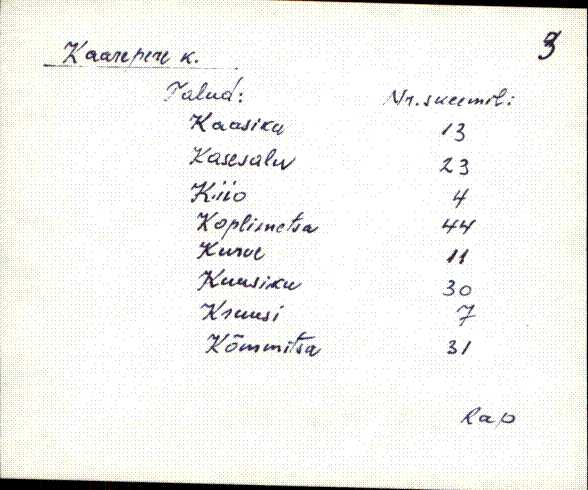 3
Kaarepere k.
Talud: Nr. skeemil:
Kaasiku 13
Kasesalu 23
Kiio 4
Koplimetsa 44
Kurve 11
Kuusiku 30
Kruusi 7
Kõmmitsa 31
Rap